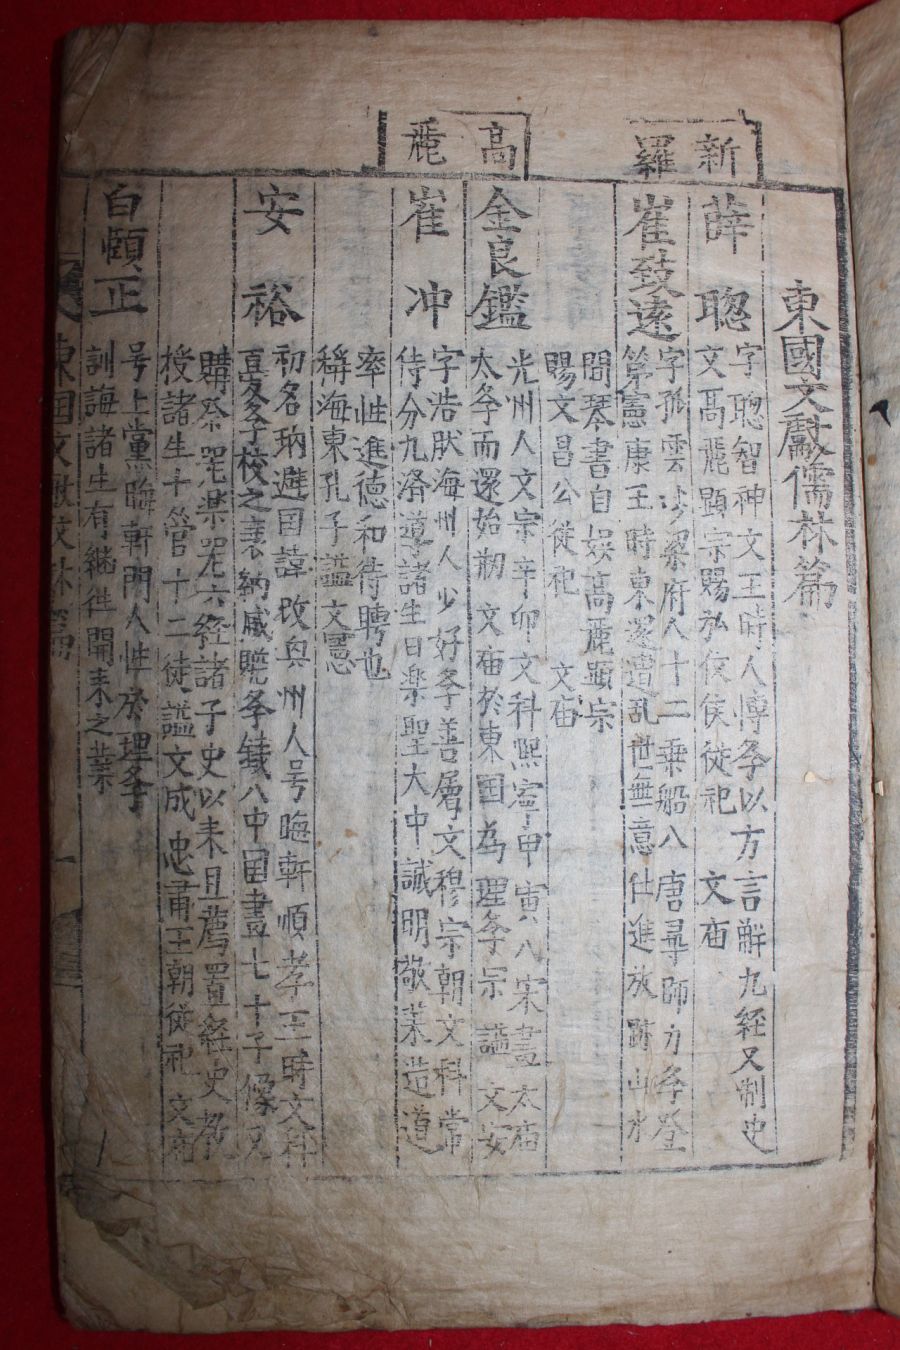 東國文獻儒林篇
新羅
薛聰
字聰智神文王時人博孝以方言解九経又制吏
文高麗顯宗賜弘侫侯従祀 文庙
崔致遠
字孤雲沙梁府人十二乗船入唐尋師力孝登
第憲康王時東還遭乱世無意仕進放跡山水
間琴書自娱高麗顯宗
賜文昌公従祀 文庙
高麗
金良鑑
光州人文宗辛卯文科熙寧甲寅入宋畫太庙
太孝而還始剏文庙於東国為理孝宗 謚文安
崔冲
字浩然海州人少好孝善属文穆宗朝文科常
侍分九済道諸生曰樂聖大中誠明敬業造道
率性進德和待聘也
稱海東孔子謚文憲
安裕
初名珦避囯諱改興州人号晦軒順孝王時文科
憂孝校之衰納臧贍孝錢入中国畫七十子像及
購祭器樂器六経諸子史以来且薦置経史教
授諸生十管十二徒謚文成忠肅王朝従祀文庙
白頥正
号上黨晦軒門人性於理孝
訓誨諸生有継徃開来之業
東国文獻儒林篇 一